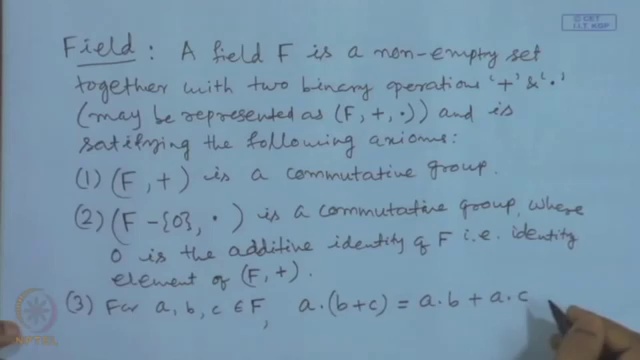 © CET
I.I.T. KGP
Field : A field F is a non-empty set
together with two binary operations '+' & '·'
(may be represented as (F, +, ·)) and is
satisfying the following axioms:
(1) (F, +) is a commutative group.
(2) (F - {0}, ·) is a commutative group, where
0 is the additive identity of F i.e. identity
element of (F, +).
(3) For a, b, c ∈ F, a · (b + c) = a · b + a · c
NPTEL